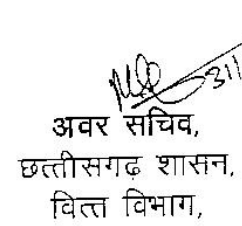 अवर सचिव,
छत्तीसगढ़ शासन,
वित्त विभाग,